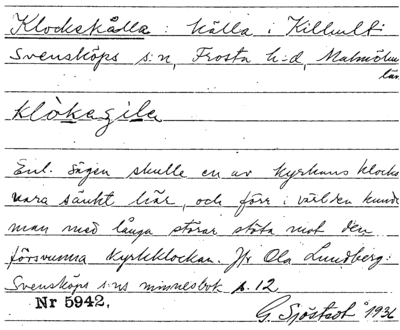 Klockekälla : källa i Killhult i
Svensköps s:n, Frosta h:d, Malmöhus
län
klòkagila
Enl. sägen skulle en av kyrkans klockor
vara sänkt här, och förr i världen kunde
man med långa störar stöta mot den
försvunna kyrkklockan. Jfr Ola Lundberg:
Svensköps s:ns minnesbok s. 12
Nr 5942.
G. Sjöstedt 1936